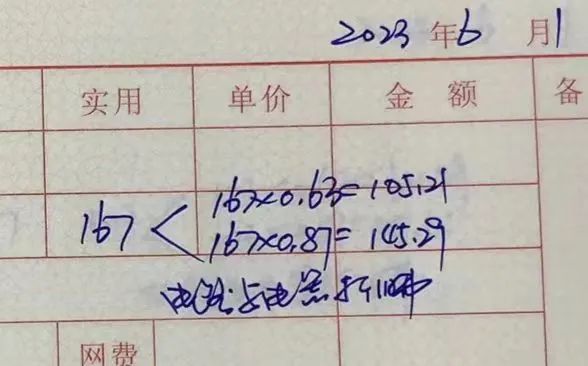 2023 年 6 月 1
实用 单价 金额 备
167×0.63=105.21
167 <
167×0.87=145.29
网费